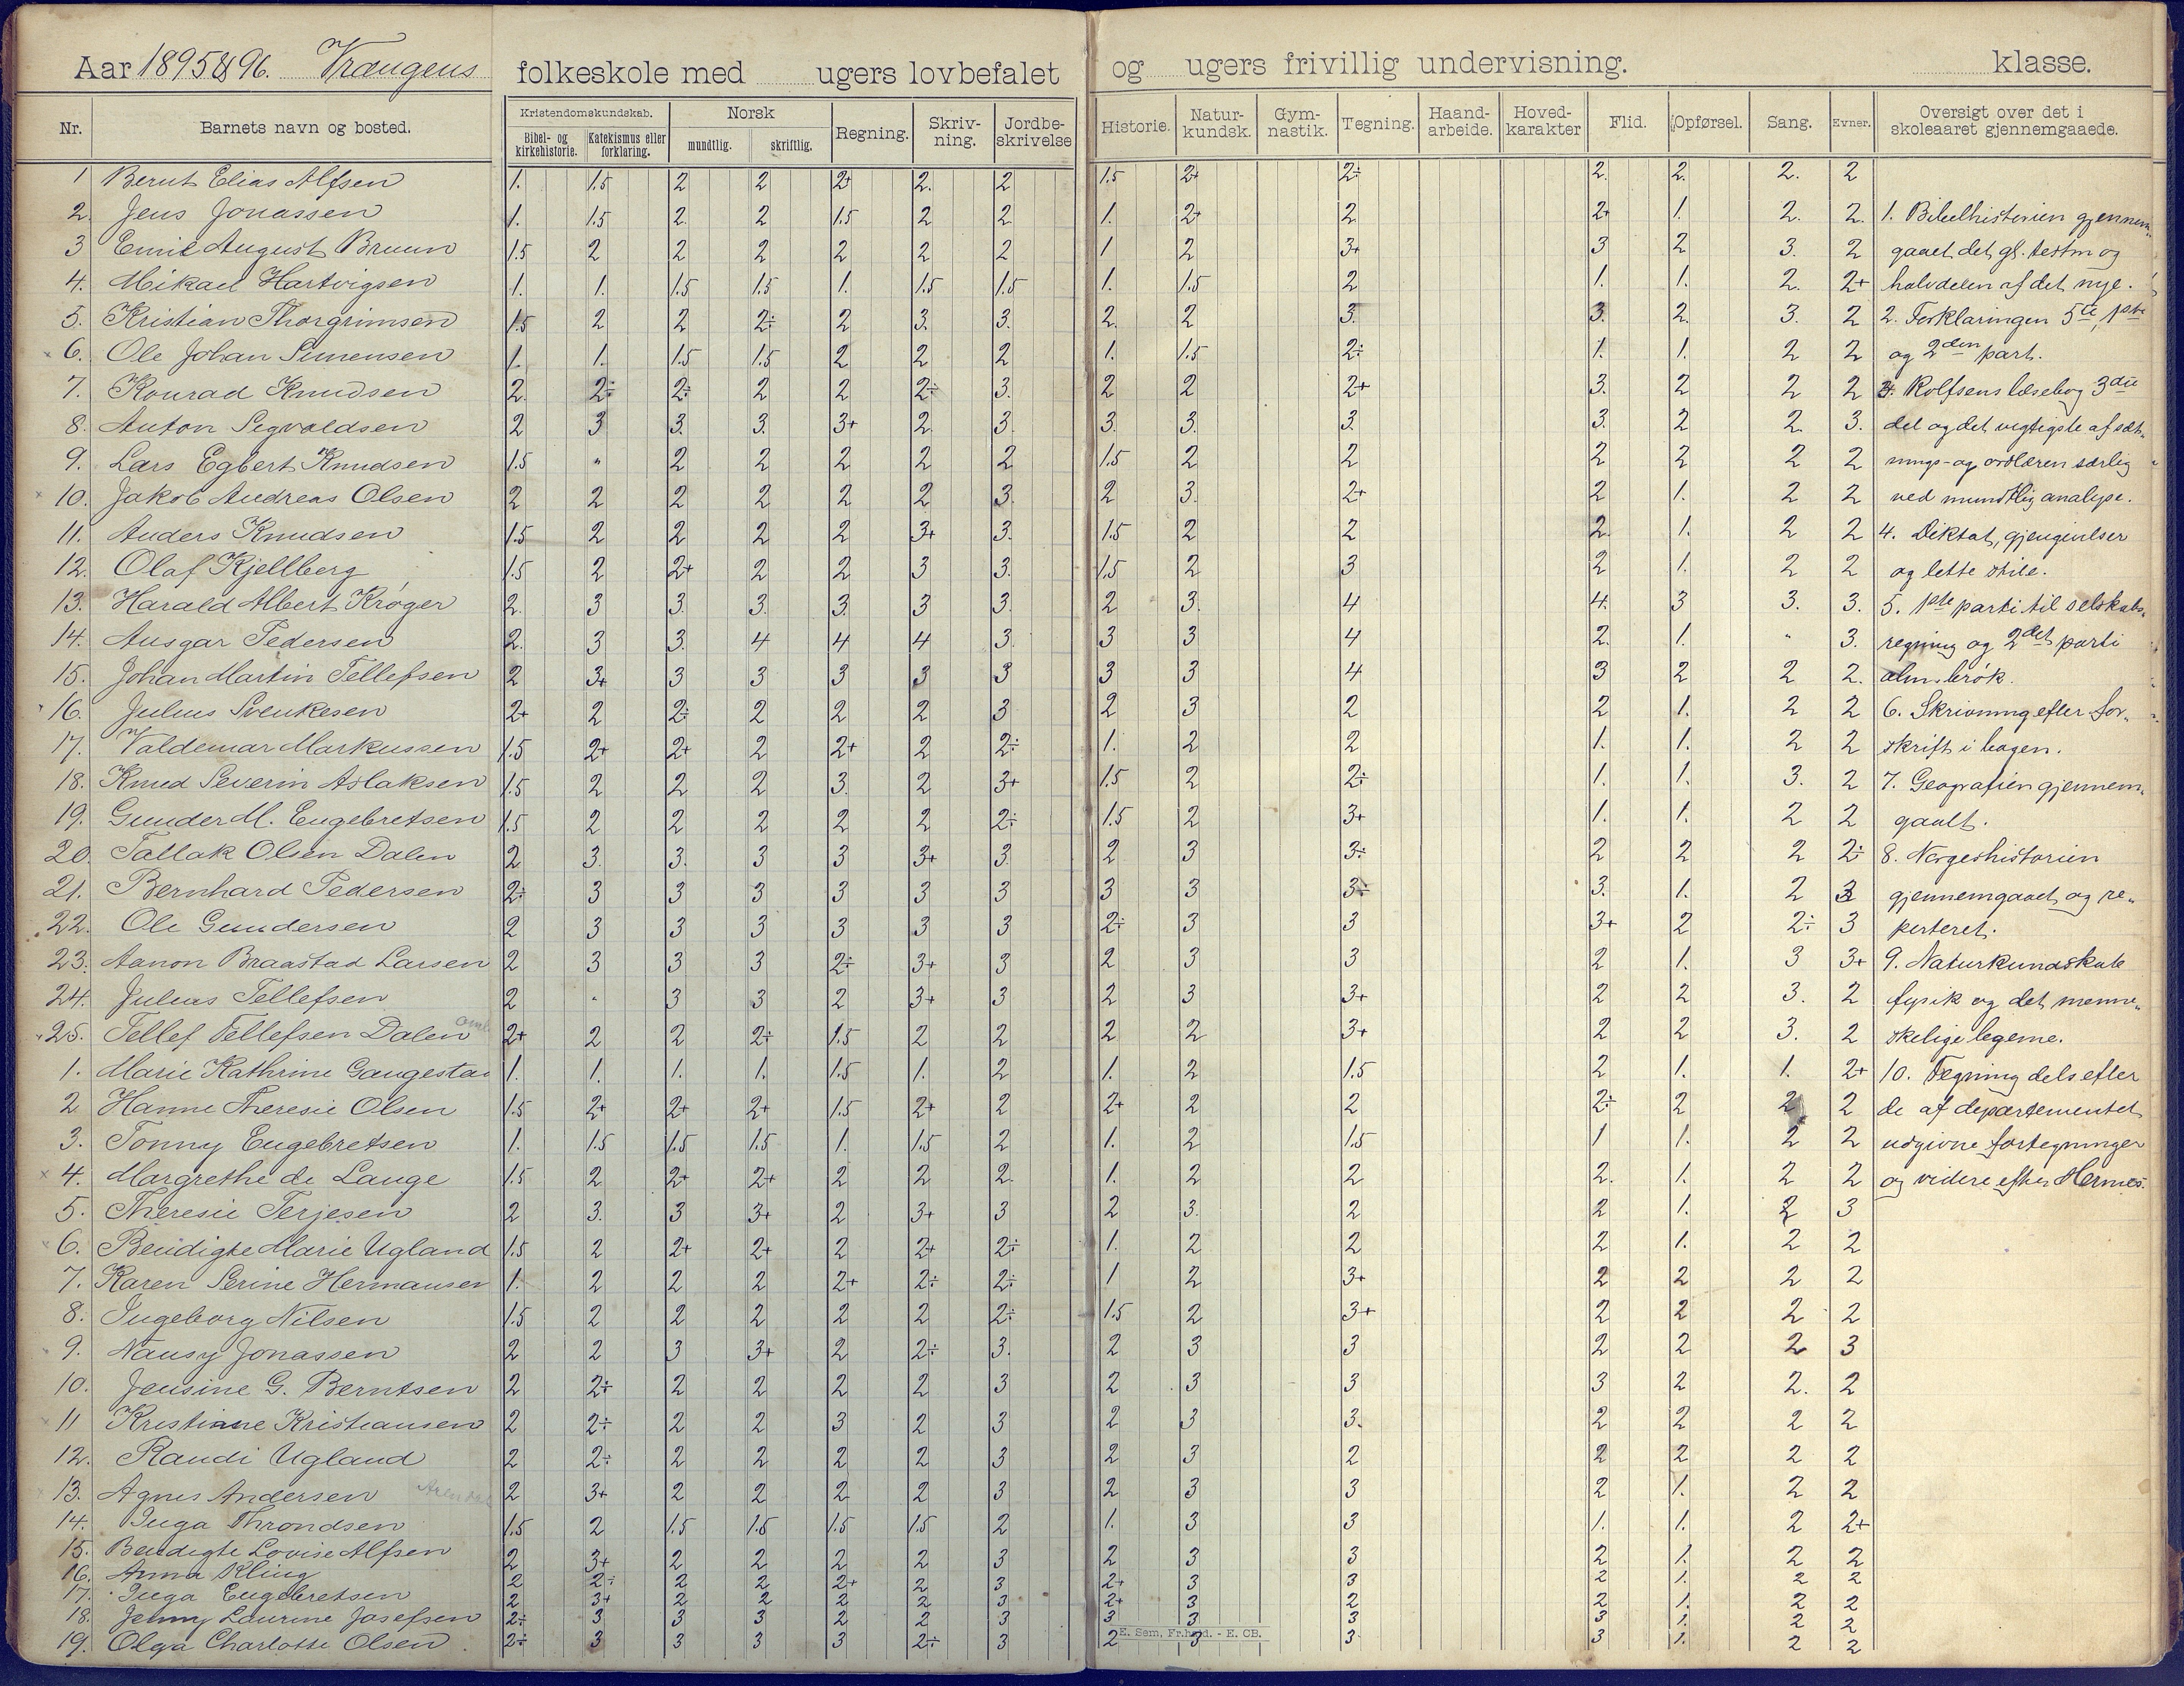 Aar 1895 & 96. Vrængens folkeskole med ugers lovbefalet og ugers frivillig undervisning. klasse.
Nr. Barnets navn og bosted. Kristendomskundskab. Bibel- og kirkehistorie. Katekismus eller forklaring. Norsk mundtlig. skriftlig. Regning. Skriv-ning. Jordbe-skrivelse Historie. Natur-kundsk. Gym-nastik. Tegning. Haand-arbeide. Hoved-karakter Flid. Opførsel. Sang. Evner. Oversigt over det i skoleaaret gjennemgaaede.
1 Bernt Elias Alfsen 1. 1.5 2 2 2+ 2. 2 1.5 2+ 2÷ 2. 2. 2. 2
2. Jens Jonassen 1. 1.5 2. 2 1.5 2 2 1. 2+ 2 2+ 1. 2. 2. 1. Bibelhistorien gjennem„
3 Emil August Bruun 1.5 2 2 2 2 2 2 1 2 3+ 3 2 3. 2 gaaet det gl. testm og
4. Mikael Hartvigsen 1. 1. 1.5 1.5 1. 1.5 1.5 1. 1.5 2 1. 1. 2. 2+ halvdelen af det nye.
5. Kristian Thorgrimsen 1.5 2 2 2÷ 2 3. 3. 2. 2 3. 3. 2. 3. 2 2. Forklaringen 5te, 1ste
6. Ole Johan Simensen 1. 1. 1.5 1.5 2 2 2 1. 1.5 2÷ 1. 1. 2 2 og 2den part.
7. Konrad Knudsen 2. 2÷ 2÷ 2 2 2÷ 3. 2 2 2+ 3. 2 2 2 3. Rolfsens læsebog 3die
8. Anton Sigvaldsen 2 3 3. 3. 3+ 2. 3. 3. 3. 3. 3. 2 2. 3. del og det vigtigste af sæt„
9. Lars Egbert Knudsen 1.5 " 2 2 2 2 2 1.5 2 2 2 2 2 2 nings- og ordlæren særlig
10. Jakob Andreas Olsen 2 2 2 2 2 2 3. 2 3. 2+ 2 1. 2 2 ved mundtlig analyse.
11. Anders Knudsen 1.5 2 2 2 2 3+ 3. 1.5 2 2 2. 1. 2 2 4. Diktat, gjengivelser
12. Olaf Kjellberg 1.5 2 2+ 2 2 3 3. 1.5 2 3 2 1. 2 2 og lette stile.
13. Harald Albert Krøger 2. 3 3. 3. 3. 3 3. 2 3. 4 4. 3 3. 3. 5. 1ste parti til selskabs„
14. Ansgar Pedersen 2. 3 3. 4 4 4 3. 3 3 4 2. 1. " 3. regning og 2det parti
15. Johan Martin Tellefsen 2 3+ 3 3 3 3 3 3 3 4 3 2 2 2. alm. brøk.
16. Julius Svenkesen 2+ 2 2÷ 2 2 2 3 2 3 2 2 1. 2 2 6. Skrivning efter for„
17. Valdemar Markussen 1.5 2+ 2+ 2 2+ 2 2÷ 1. 2 2 1. 1. 2 2 skrift i bogen.
18. Knud Severin Aslaksen 1.5 2 2 2 3. 2 3+ 1.5 2 2÷ 1. 1. 3. 2 7. Geografien gjennem„
19. Gunder M. Engebretsen 1.5 2 2 2 2 2 2÷ 1.5 2 3+ 1. 1. 2 2 gaalt.
20. Tallak Olsen Dalen 2 3. 3. 3 3 3+ 3. 2 3 3÷ 2 2 2 2÷ 8. Norgeshistorien
21. Bernhard Pedersen 2÷ 3 3 3 3 3 3 3 3 3÷ 3. 1. 2 3 gjennemgaaet og re„
22. Ole Gundersen 2 3 3 3 3 3 3 2÷ 3 3 3+ 2 2÷ 3 peteret.
23. Aanon Braastad Larsen 2 3 3 3 2÷ 3+ 3 2 3 3 2 1. 3 3+ 9. Naturkundskab
24. Julius Tellefsen 2 " 3 3 2 3+ 3 2 3 3+ 2 2 3. 2 fysik og det menne„
25. Tellef Tellefsen Dalen 2+ 2 2 2÷ 1.5 2 2 2 2 3+ 2 2 3. 2 skelige legeme.
1. Marie Kathrine Gangestad 1. 1. 1. 1. 1.5 1. 2 1. 2 1.5 2 1. 1. 2+ 10. Tegning dels efter
2 Hanne Theresie Olsen 1.5 2+ 2+ 2+ 1.5 2+ 2 2+ 2 2 2÷ 2 2 2 de af departementet
3. Tonny Engebretsen 1. 1.5 1.5 1.5 1. 1.5 2 1. 2 1.5 1 1. 2 2 udgivne fortegninger
4. Margrethe de Lange 1.5 2 2+ 2+ 2 2 2. 1. 2 2 2. 1. 2 2 og videre efter Hermes.
5. Theresie Terjesen 2 3. 3 3+ 2 3+ 3 2 3. 2 2 1. 2 3
6. Bendigte Marie Ugland 1.5 2 2+ 2+ 2 2+ 2÷ 1. 2 2 2 1. 2 2
7. Karen Serine Hermansen 1. 2 2 2 2+ 2÷ 2÷ 1 2 3+ 2 2 2 2
8. Ingeborg Nilsen 1.5 2 2 2 2 2 2÷ 1.5 2 3+ 2 2 2 2
9. Nansy Jonassen 2 2 3 3+ 2 2÷ 3. 2 3 3 2 2 2 3
10. Jensine G. Berntsen 2 2÷ 2 2 2 2 3 2 3 3 3 2 2. 2
11 Kristiane Kristiansen 2 2÷ 2 2 3 2 3 2 3 3. 2 2 2 2
12. Randi Ugland 2 2÷ 2 2 2 2 3 2 3 2 2 2 2 2
13. Agnes Andersen Arendal 2 3+ 2 2 2 2 3 2 3 3 2 1. 2 2
14. Inga Throndsen 1.5 2 1.5 1.5 1.5 1.5 2 1. 3 3 1. 1. 2 2+
15. Bendigte Lovise Alfsen 2 3+ 2 2 2 2 3 2 3 3 2 1. 2 2
16. Anna Kling 2 2÷ 2 2 2+ 2 3 2+ 3 3 2 1. 2 2
17. Inga Engebretsen 2 3+ 2 2 2 2 3 2+ 3 2 2 1. 2 2
18. Jenny Laurine Josefsen 2÷ 3 3 3 2 2 3 3 3 3 3 1. 2 2
19. Olga Charlotte Olsen 2÷ 3 3 3 3 2÷ 3 2 3 3 3 1. 2 2
E. Sem, Fr.hald. - E. CB.